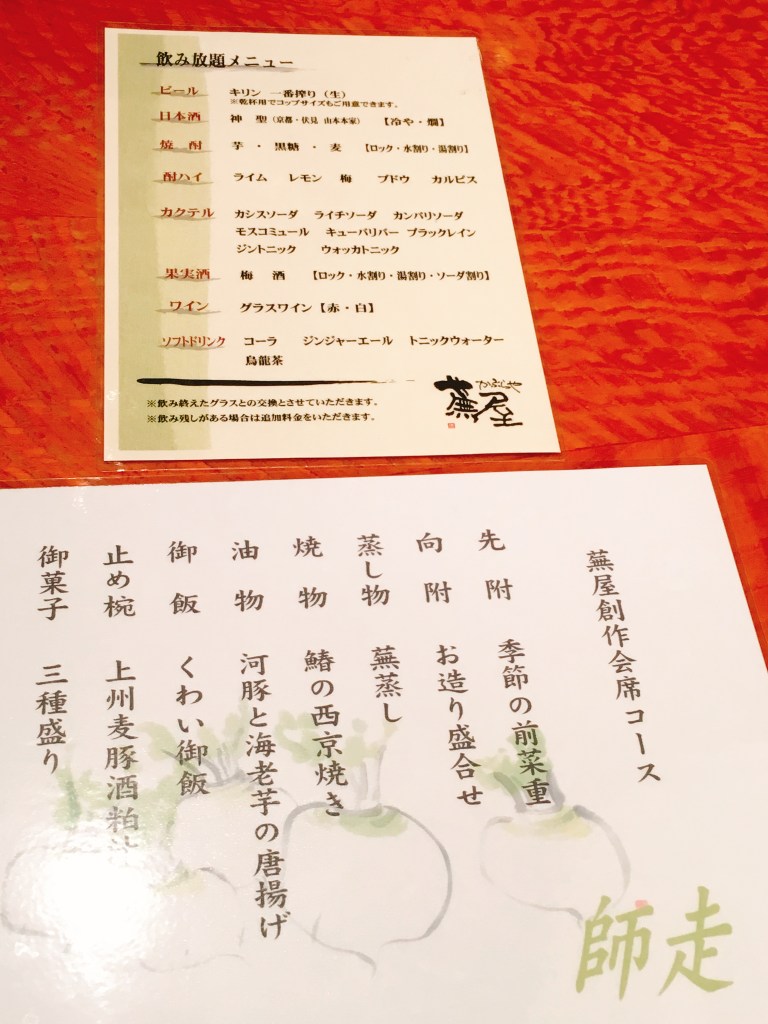 飲み放題メニュー
ビール キリン 一番搾り（生）
※乾杯用でコップサイズもご用意できます。
日本酒 神 聖（京都・伏見 山本本家） 【冷や・燗】
焼 酎 芋 ・ 黒糖 ・ 麦 【ロック・水割り・湯割り】
酎ハイ ライム レモン 梅 ブドウ カルピス
カクテル カシスソーダ ライチソーダ カンパリソーダ
モスコミュール キューバリバー ブラックレイン
ジントニック ウォッカトニック
果実酒 梅 酒 【ロック・水割り・湯割り・ソーダ割り】
ワイン グラスワイン【赤・白】
ソフトドリンク コーラ ジンジャーエール トニックウォーター
烏龍茶
※飲み終えたグラスとの交換とさせていただきます。
※飲み残しがある場合は追加料金をいただきます。
かぶらや
蕪屋
蕪屋創作会席コース
先 附 季節の前菜重
向 附 お造り盛合せ
蒸し物 蕪蒸し
焼 物 鰆の西京焼き
油 物 河豚と海老芋の唐揚げ
御 飯 くわい御飯
止め椀 上州麦豚酒粕汁
御菓子 三種盛り
師走